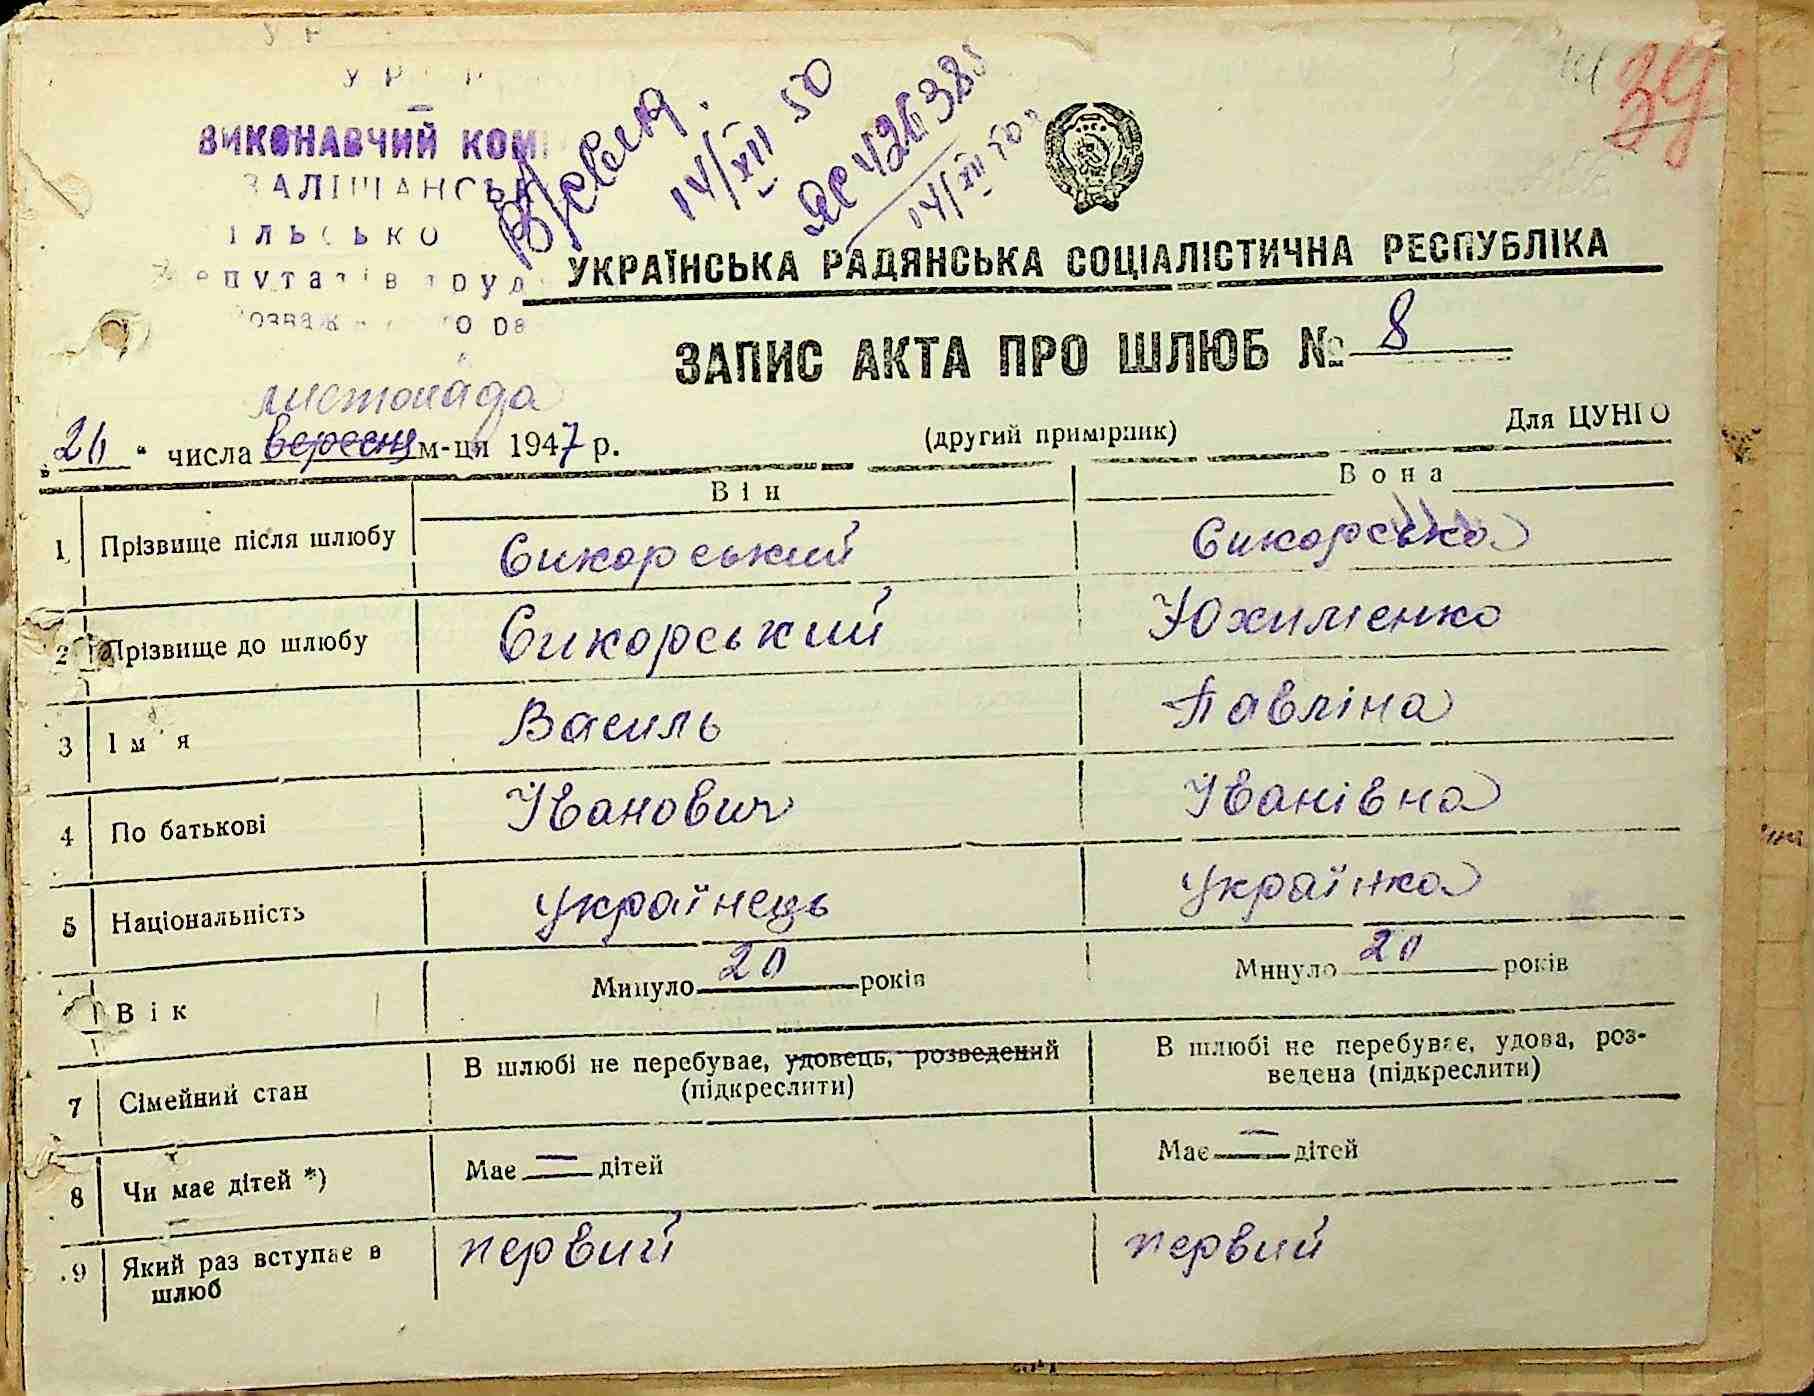 ВИКОНАВЧИЙ КОМ
ЗАЛІШАНСЬК
ІЛЬСЬКО
епутатів труд
14/XII 50
ЯС 426385
14/XII 50 р
39
УКРАЇНСЬКА РАДЯНСЬКА СОЦІАЛІСТИЧНА РЕСПУБЛІКА
ЗАПИС АКТА ПРО ШЛЮБ № 8
листопада
„26“ числа вересня м-ця 1947 р.
(другий примірник)
Для ЦУНГО
Він
Вона
1 Прізвище після шлюбу Сикорський Сикорська
2 Прізвище до шлюбу Сикорський Юхименко
3 Ім'я Василь Павліна
4 По батькові Іванович Іванівна
5 Національність українець українка
Вік Минуло 20 років Минуло 20 років
7 Сімейний стан В шлюбі не перебуває, удовець, розведений (підкреслити) В шлюбі не перебуває, удова, роз-
ведена (підкреслити)
8 Чи має дітей *) Має — дітей Має — дітей
9 Який раз вступає в шлюб первий первий